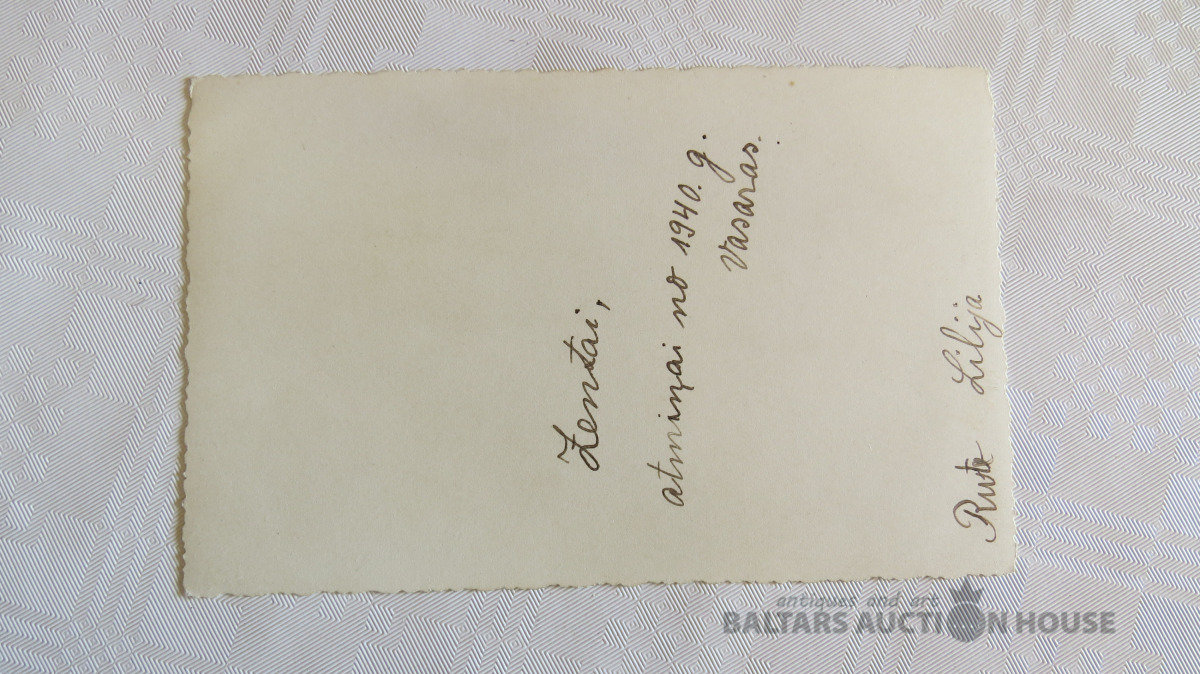 Zentai,
atmiņai no 1940. g.
Vasaras.
Ruta Lilija
antiques and art
BALTARS AUCTION HOUSE